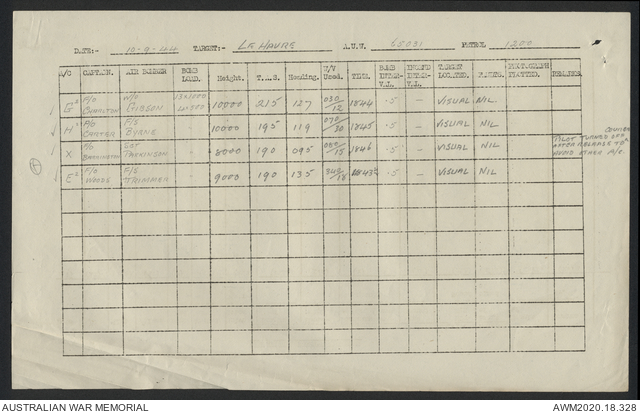 DATE:- 10-9-44 TARGET:- LE HAVRE A.U.W. 65031 PETROL 1200
A/C CAPTAIN. AIR BOMBER BOMB LOAD. Height. T.A.S. Heading. W/V Used. TIME. BOMB INTER-VAL. TARGET LOCATED. PHOTOGRAPH PLOTTED. REMARKS.
G² F/O CHARLTON W/O GIBSON 10000 215 127 030/12 1844 .5 — VISUAL NIL.
H F/O CARTER F/S BYRNE 10000 195 119 070/20 1845 .5 — VISUAL NIL
X BARRINGTON SGT PARKINSON 8000 190 095 1846 .5 — VISUAL NIL PILOT TURNED OFF AFTER RELEASE TO AVOID OTHER A/C.
E² F/O WOODS F/S TRIMMER 9000 190 135 1843½ .5 — VISUAL NIL
AUSTRALIAN WAR MEMORIAL AWM2020.18.328